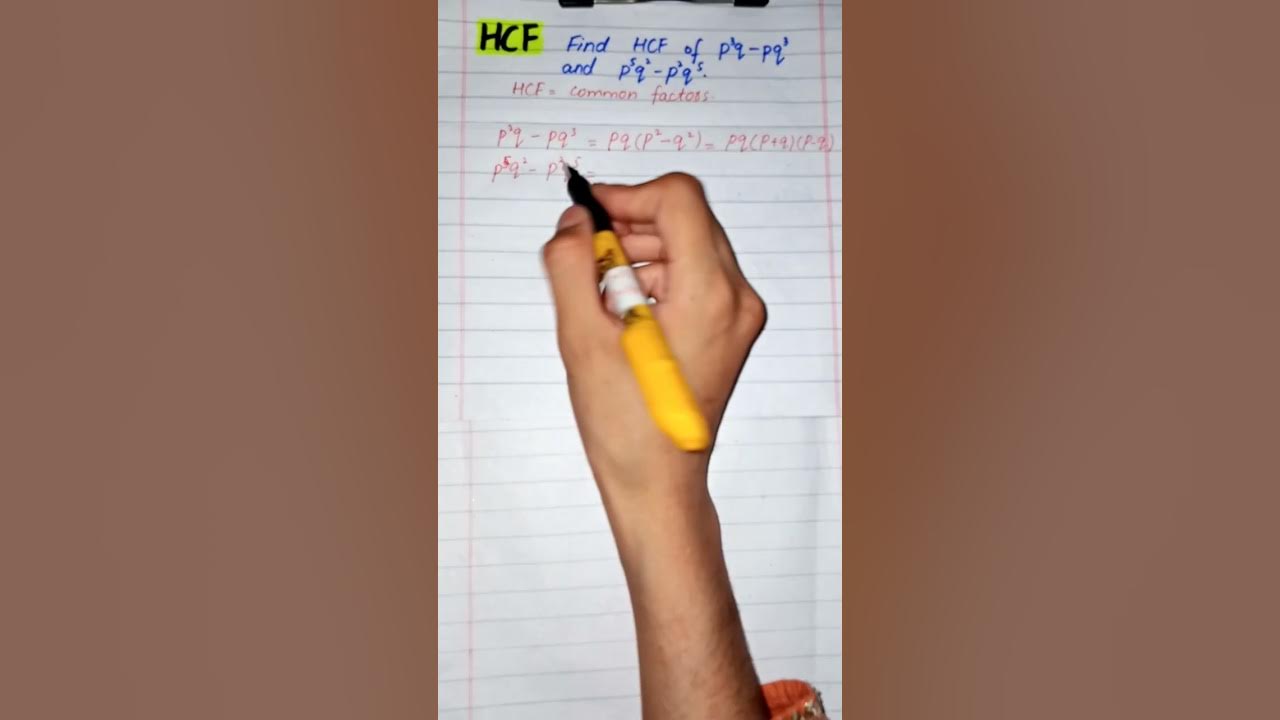 HCF Find HCF of p³q - pq³
and p⁵q² - p²q⁵.
HCF = common factors
p³q - pq³ = pq(p² - q²) = pq(p+q)(p-q)
p⁵q² - p²q⁵ =